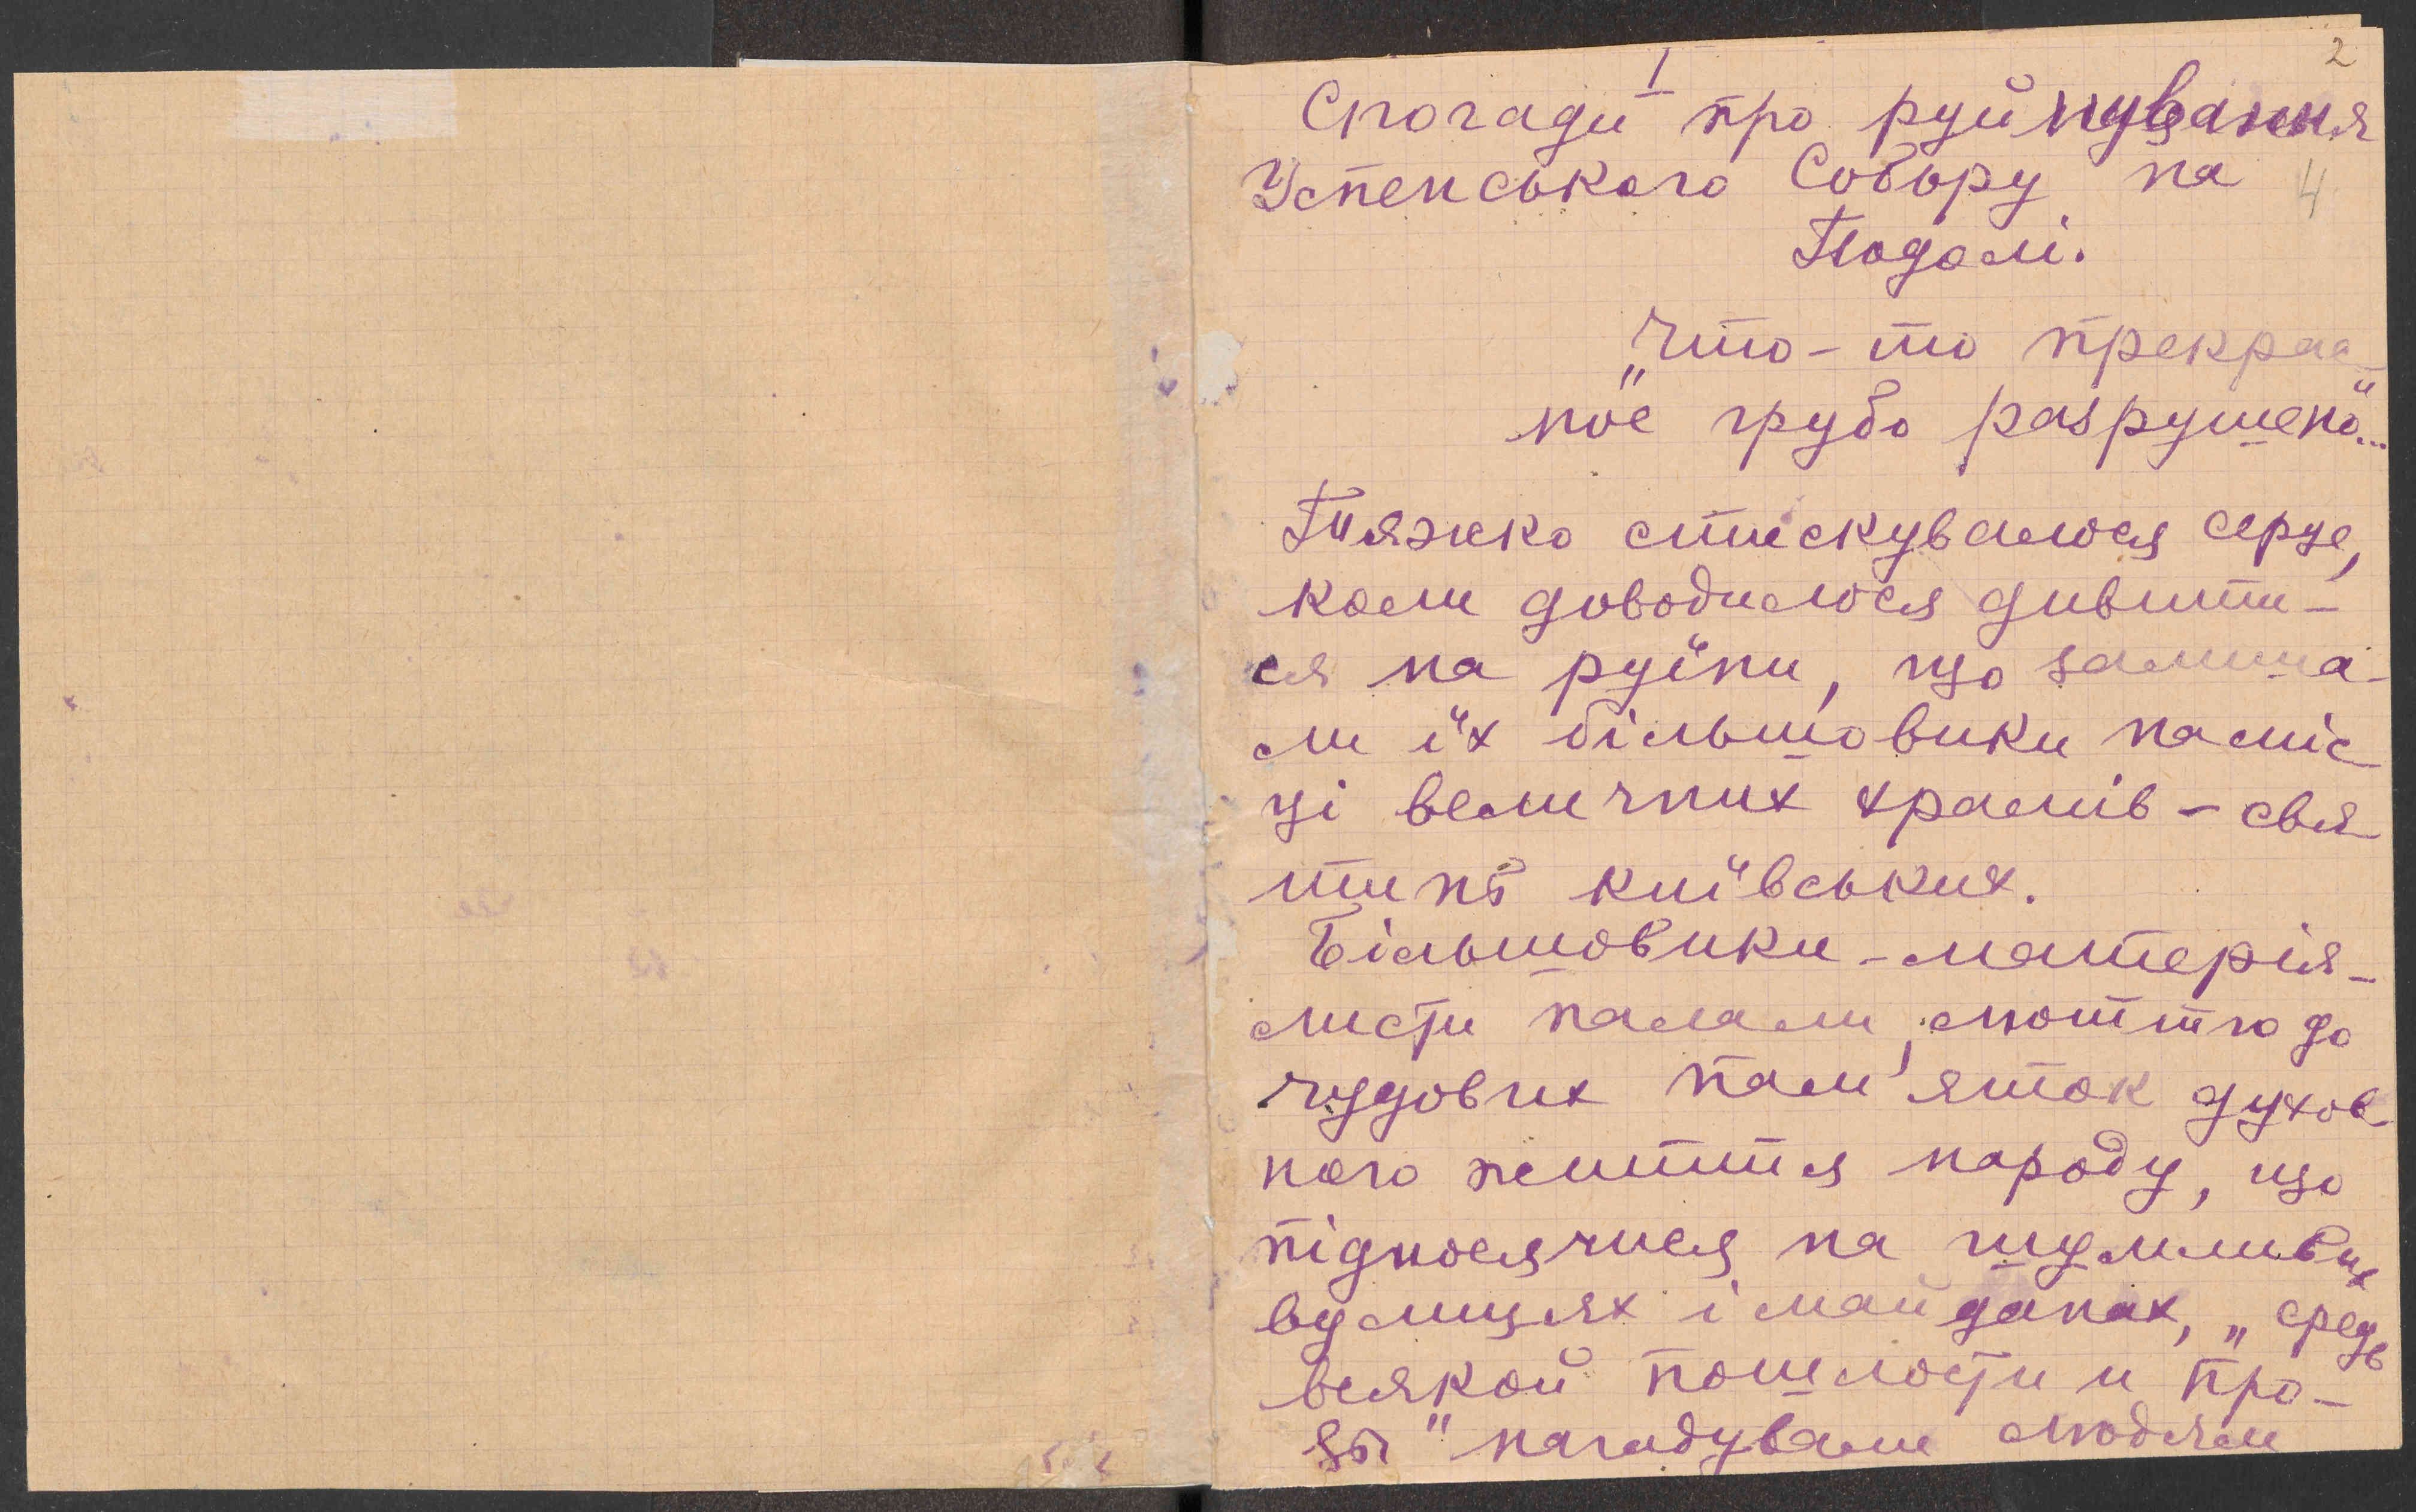 2
I
Спогади про руйнування
Успенського Собору на
4
Подолі.
„Что-то прекрас-
ное грубо разрушено"...
Тяжко стискувалося серце,
коли доводилося дивити-
ся на руїни, що залиша-
ли їх більшовики на міс
ці величних храмів - свя
тинь київських.
Більшовики-матерія-
лісти палали люттю до
чудових пам'яток духов-
ного життя народу, що
підносячися на шумливих
вулицях і майданах, „средь
всякой пошлости и про-
зы" нагадували людям